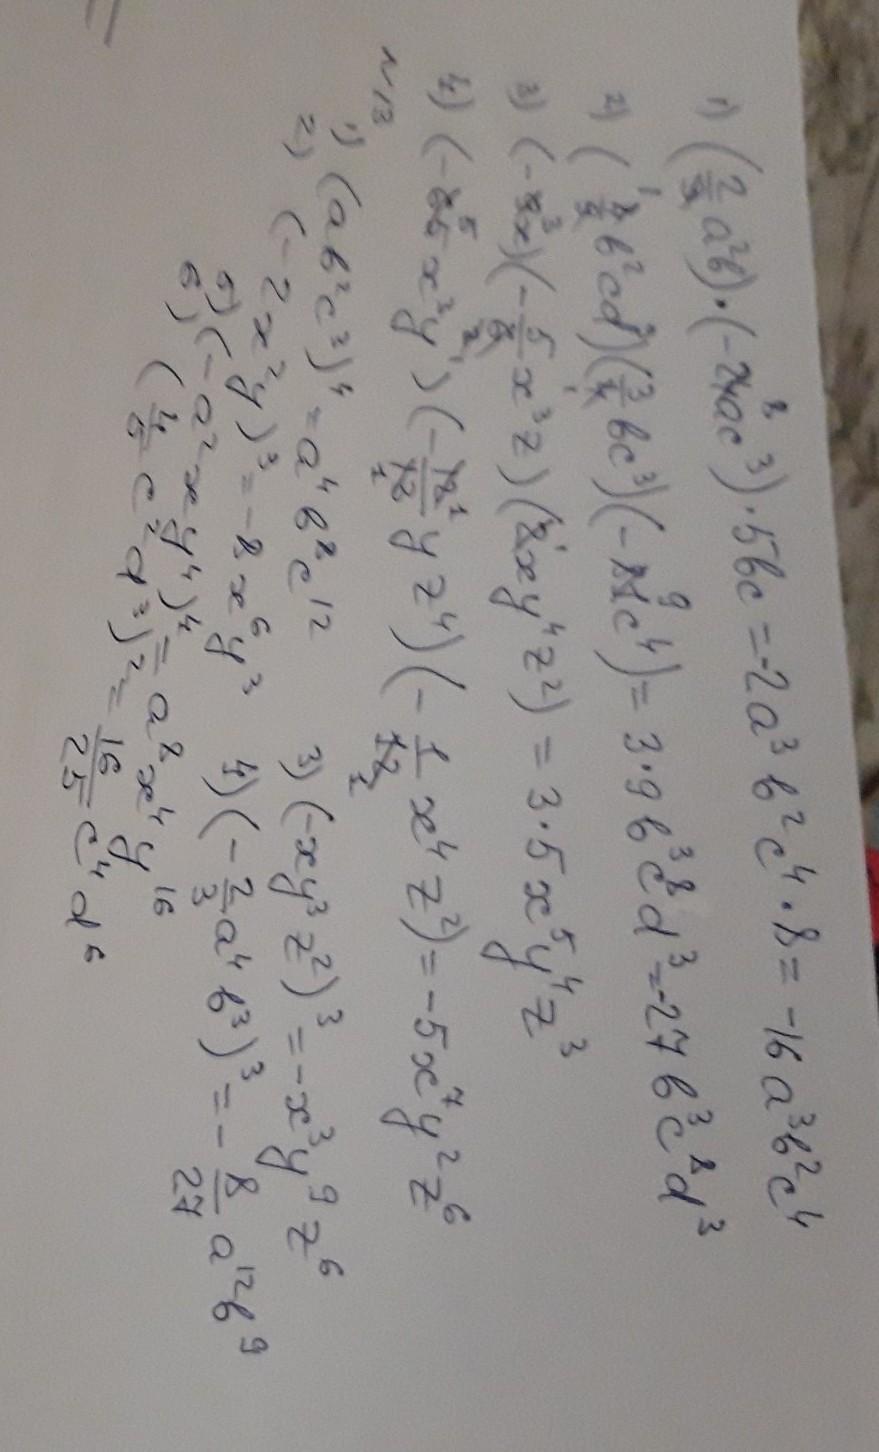 1) (2/5 a²b)·(-24ac³)·5bc = -2a³b²c⁴·8 = -16a³b²c⁴
2) (b²cd³)(3/4 bc³)(-c⁴) = 3·9b³c⁸d³ = -27b³c⁸d³
3) (-x)(-5/8 x³z)(2xy⁴z²) = 3·5x⁵y⁴z³
4) (-x³y)(-yz⁴)(-x⁴z²) = -5x⁷y²z⁶
N13
1) (ab²c³)⁴ = a⁴b⁸c¹² 3) (-xy³z²)³ = -x³y⁹z⁶
2) (-2x²y)³ = -8x⁶y³ 4) (-2/3 a⁴b³)³ = -8/27 a¹²b⁹
5) (-a²xy⁴)⁴ = a⁸x⁴y¹⁶
6) (4/5 c²d³)² = 16/25 c⁴d⁶